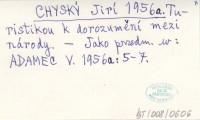 CHYSKÝ Jiří 1956a. Tu-
ristikou k dorozumění mezi
národy. – Jako předm. in:
ADAMEC V. 1956a: 5-7.
BT/008/0606